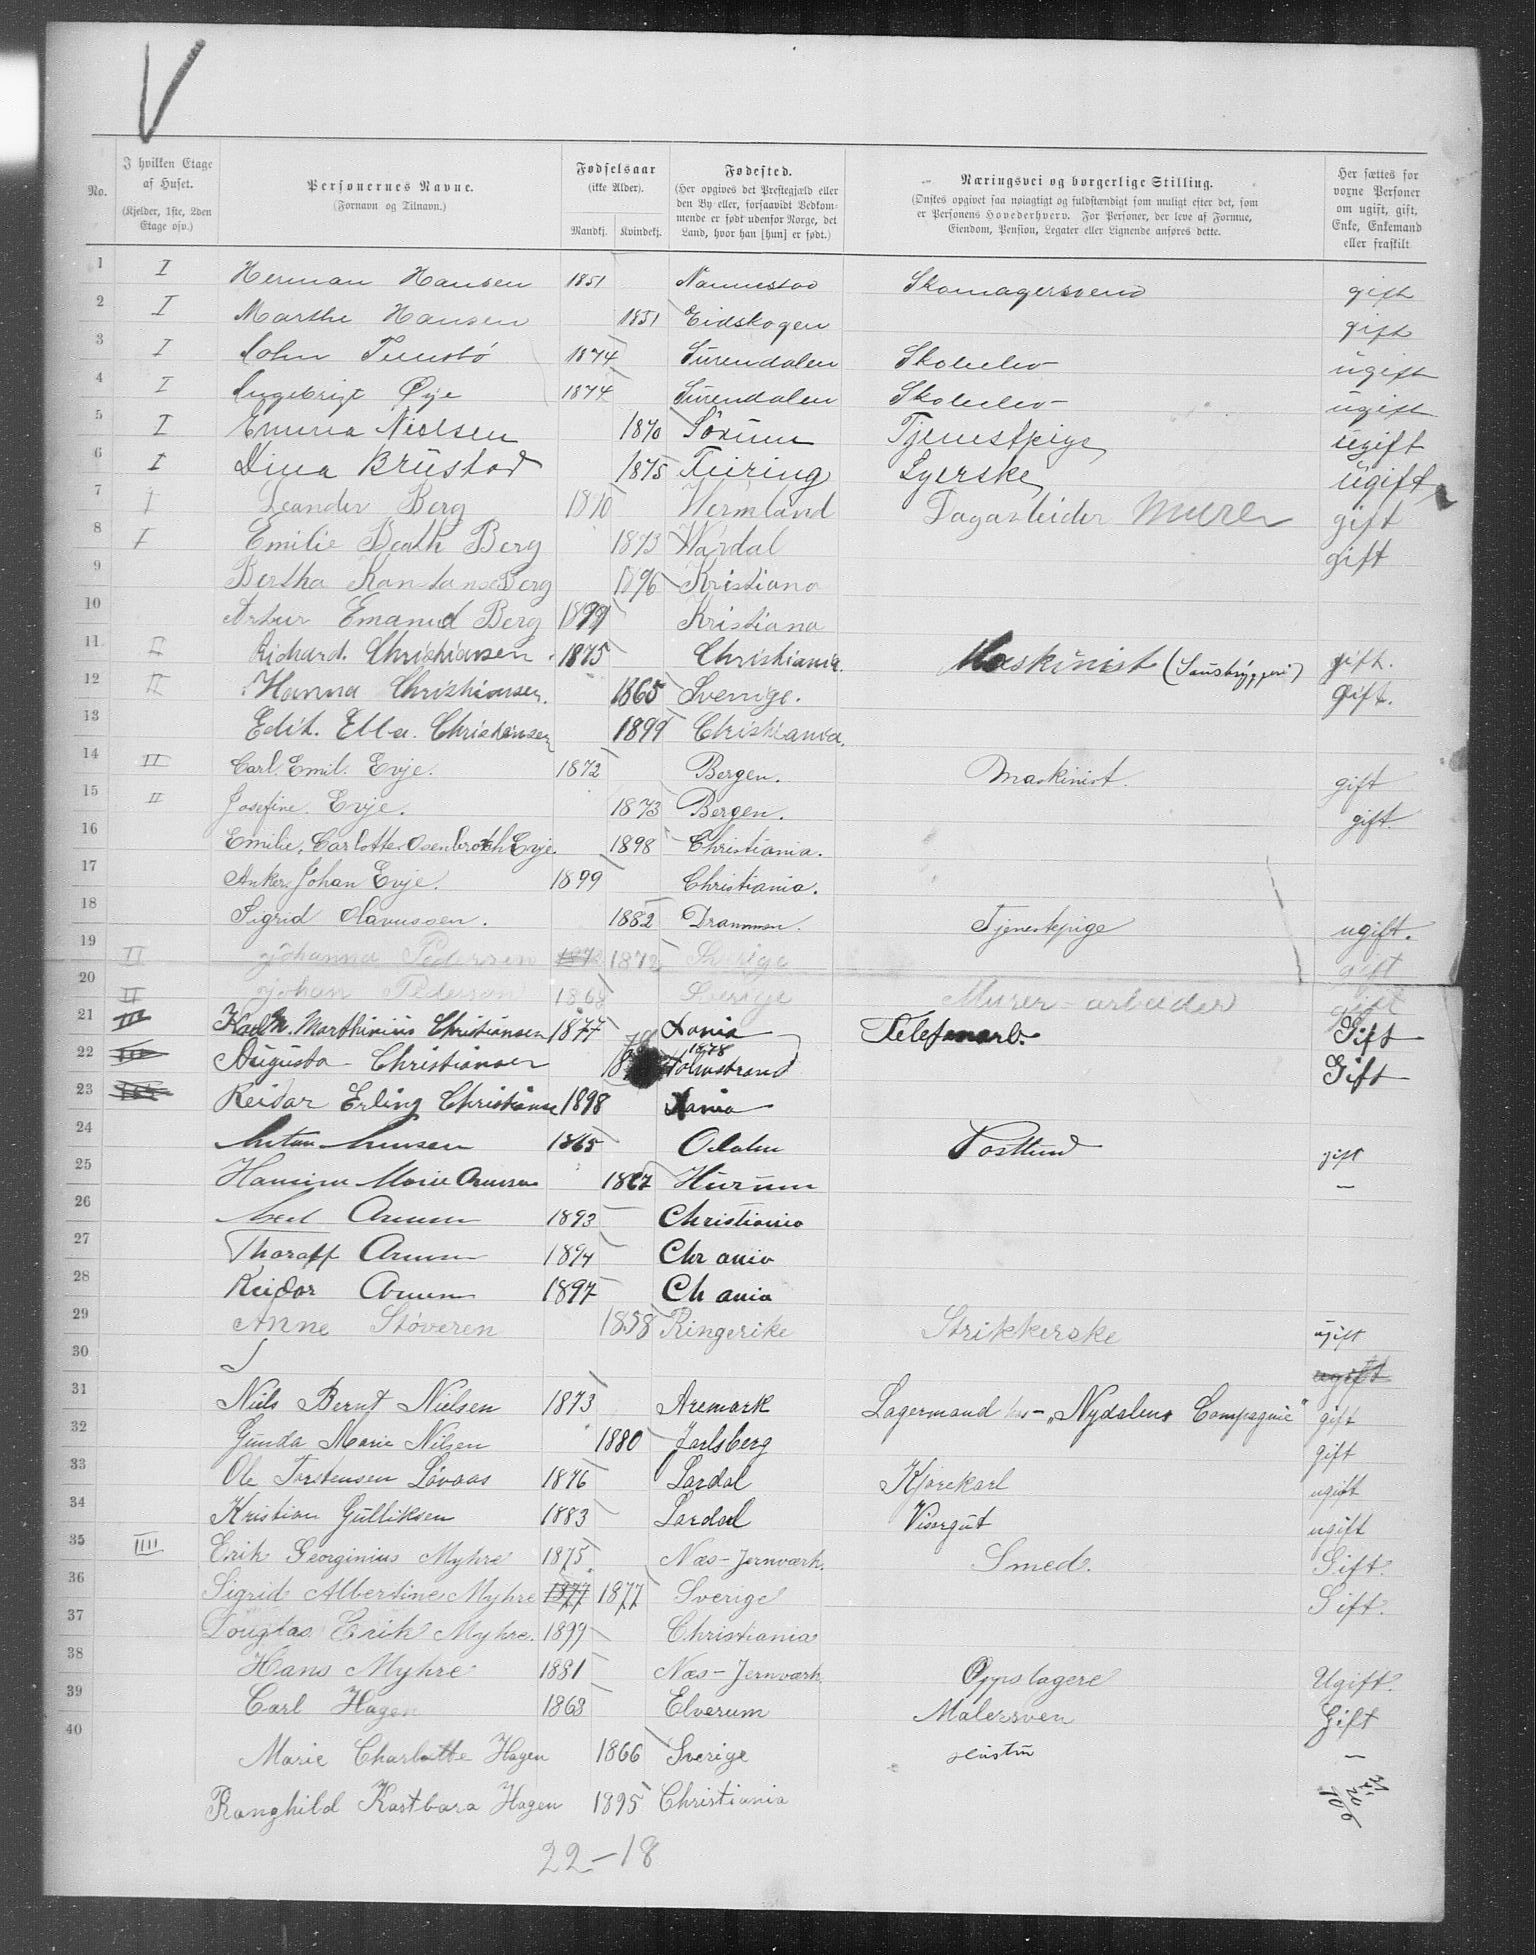 V
No. I hvilken Etage af Huset. (Kjelder, 1ste, 2den Etage osv.) Personernes Navne. (Fornavn og Tilnavn.) Fødselsaar (ikke Alder). Mandkj. Kvindekj. Fødested. (Her opgives det Prestegjæld eller den By eller, forsaavidt Vedkommende er født udenfor Norge, det Land, hvor han [hun] er født.) Næringsvei og borgerlige Stilling. (Ønskes opgivet saa nøiagtigt og fuldstændigt som muligt efter det, som er Personens Hovederhverv. For Personer, der leve af Formue, Eiendom, Pension, Legater eller Lignende anføres dette. Her sættes for voxne Personer om ugift, gift, Enke, Enkemand eller fraskilt
1 I Herman Hansen 1851 Nannestad Skomagersvend gift
2 I Marthe Hansen 1851 Eidskogen gift
3 I John 1874 Surendalen Skoleelev ugift
4 I Ingebrigt Øye 1874 Surendalen Skoleelev ugift
5 I Emma Nielsen 1870 Sørum Tjenestpige ugift
6 I Dina Brustad 1875 Feiring Syerske ugift
7 I Leander Berg 1870 Wermland Dagarbeider Murer gift
8 I Emilie Beath Berg 1873 Wardal gift
9 Bertha Konstanse Berg 1896 Kristiana
10 Artur Emanuel Berg 1899 Kristiana
11 II Richard. Christiansen. 1875 Christiania. Maskinist (Sansbryggeri) gift.
12 II Hanna Christiansen. 1865 Sverrige. gift.
13 Edit. Ella. Christiansen 1899 Christiania.
14 II Carl. Emil. Evje. 1872 Bergen. Maskinist. gift
15 II Josefine. Evje. 1873 Bergen. gift.
16 Emilie. Carlotte Osenbroch Evje. 1898 Christiania.
17 Anker. Johan Evje. 1899 Christiania.
18 Sigrid Olavussen. 1882 Drammen. Tjenestepige ugift.
19 II Johanna Pedersen 1872 1872 Sverige gift
20 II Johan Pederson 1868 Sverige Murer-arbeider gift
21 III Karl M. Marthinius Christiansen 1877 Xania Telefonarb. Gift
22 III Augusta Christiansen 78 1878 Holmstrand Gift
23 III Reidar Erling Christianse 1898 Xania
24 Anton Arnesen 1865 Odalen Postbud gift
25 Hansine Marie 1867 Hurum —
26 Axel 1893 Christiania
27 Thoralf 1894 Chr ania
28 Reidar 1897 Ch ania
29 Anne Støveren 1858 Ringerike Strikkerske ugift
30 ugift
31 Niels Bernt Nielsen 1873 Aremark Lagermand hos "Nydalens Compagnie" gift
32 Gunda Marie Nilsen 1880 Jarlsberg gift
33 Ole Torstensen Løvaas 1876 Lardal Kjørekarl ugift
34 Kristian Gulliksen 1883 Lardal Visergut ugift
35 IIII Erik Georginius Myhre 1875 Næs-Jernværk. Smed. Gift.
36 Sigrid Albertine Myhre 1877 1877 Sverige Gift.
37 Douglas Erik Myhre. 1899 Christiania
38 Hans Myhre 1881 Næs-Jernværk. Oppslagere Ugift.
39 Carl Hagen 1863 Elverum Malersven Gift
40 Marie Charlotte Hagen 1866 Sverige Hustru —
Ranghild Kastbara Hagen 1895 Christiania
22-18